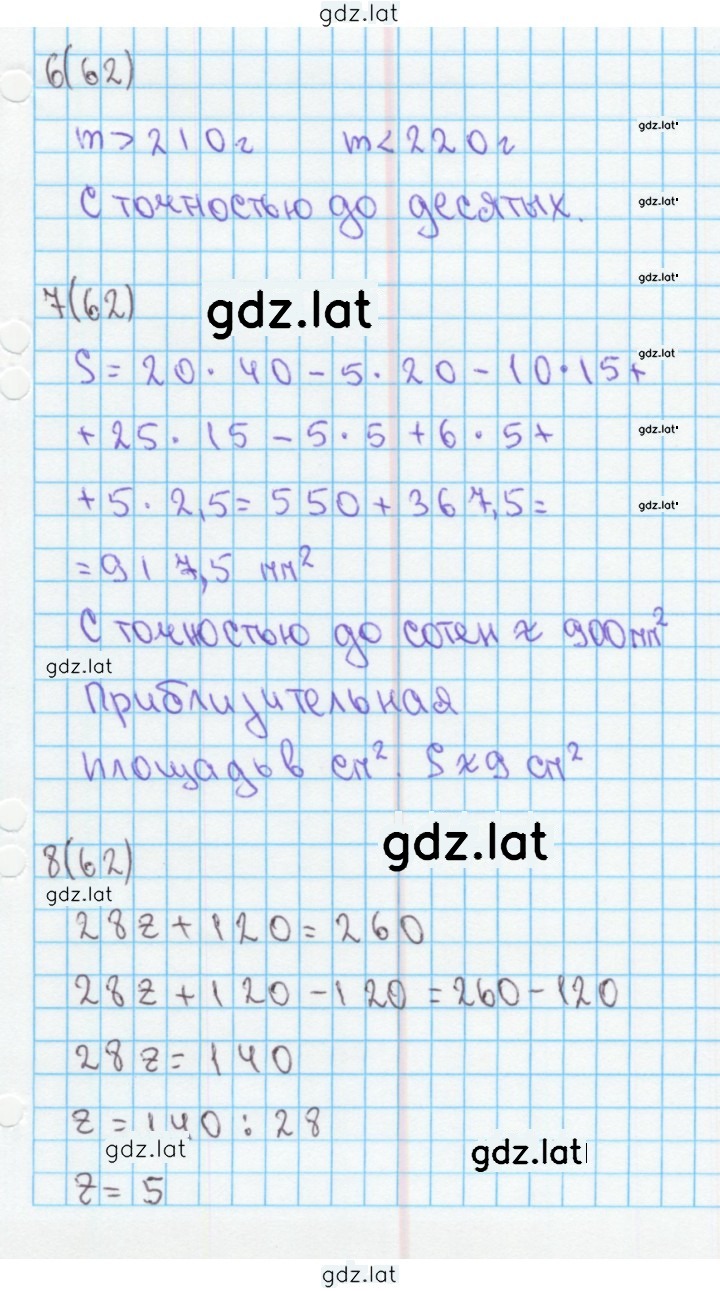 gdz.lat
6(62)
m > 210 г m < 220 г
gdz.lat
С точностью до десятых.
gdz.lat
gdz.lat
7(62)
gdz.lat
S = 20 · 40 - 5 · 20 - 10 · 15 +
gdz.lat
+ 25 · 15 - 5 · 5 + 6 · 5 +
gdz.lat
+ 5 · 2,5 = 550 + 367,5 =
gdz.lat
= 917,5 мм²
С точностью до сотен ≈ 900 мм²
gdz.lat
Приблизительная
площадь в см². S ≈ 9 см²
gdz.lat
8(62)
gdz.lat
28z + 120 = 260
28z + 120 - 120 = 260 - 120
28z = 140
z = 140 : 28
gdz.lat
gdz.lat
z = 5
gdz.lat